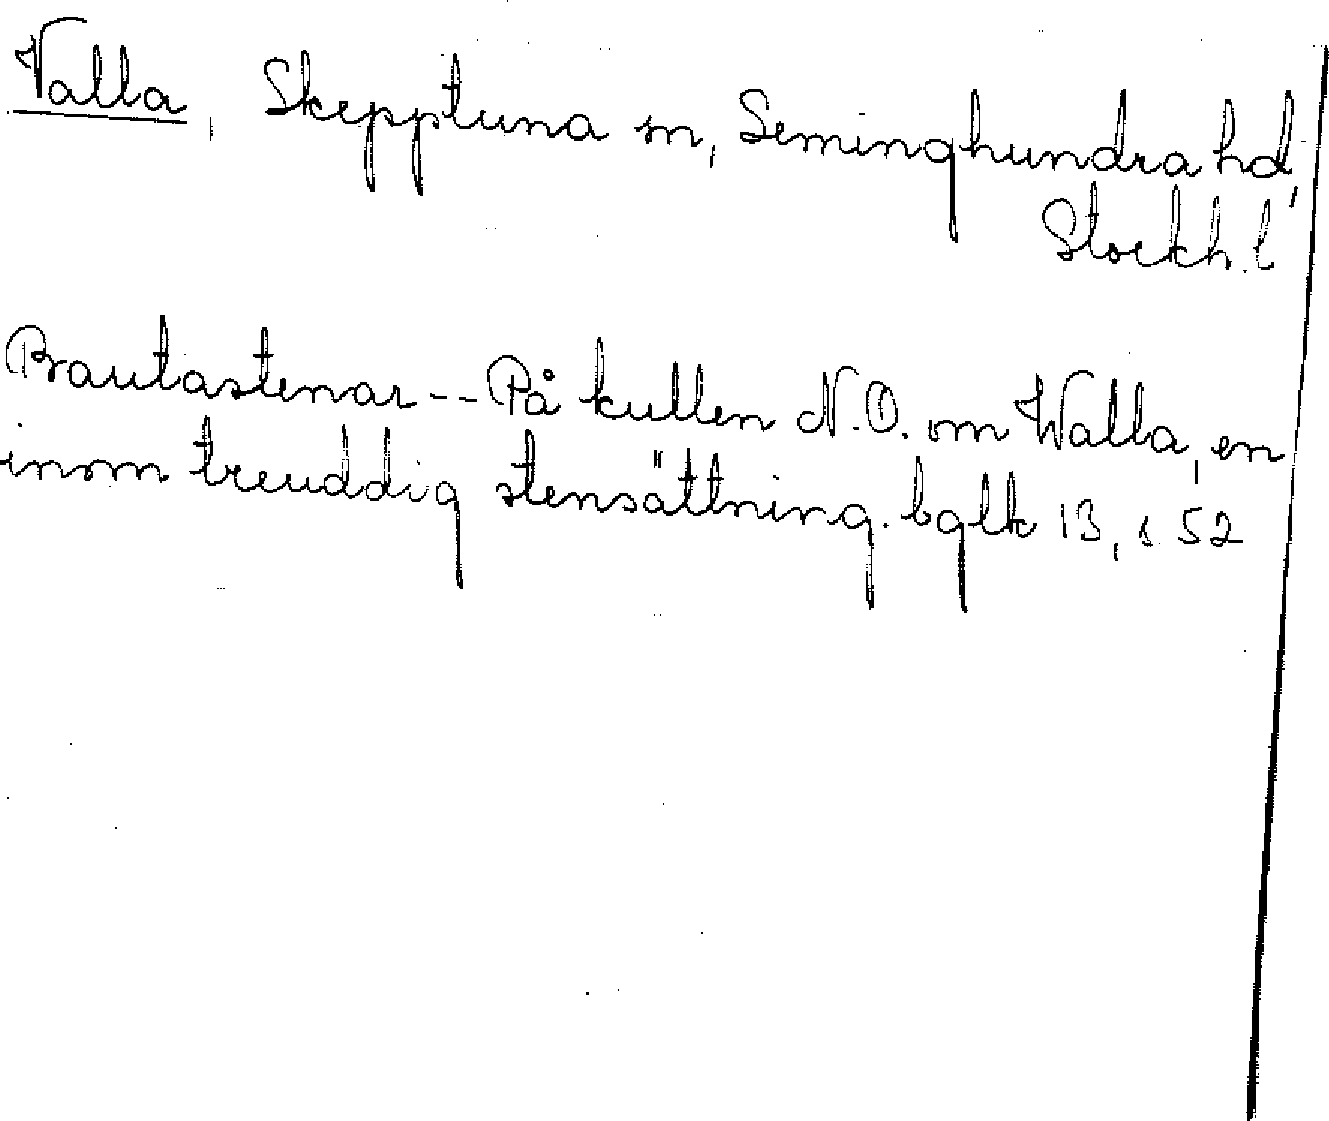 Valla, Skepptuna sn, Seminghundra hd,
Stockh. l
Brautastenar -- På kullen N.O. om Walla, en
inom treuddig stensättning. bglk 13, s 52